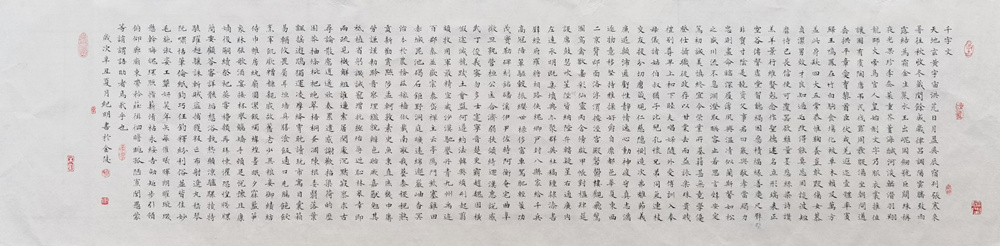 千字文
天地玄黄宇宙洪荒日月盈昃辰宿列張寒来
暑往秋收冬藏閏餘成歲律吕調陽雲騰致雨
露結為霜金生麗水玉出崑岡劍號巨闕珠稱
夜光果珍李柰菜重芥薑海鹹河淡鱗潛羽翔
龍師火帝鳥官人皇始制文字乃服衣裳推位
讓國有虞陶唐弔民伐罪周發殷湯坐朝問道
垂拱平章愛育黎首臣伏戎羌遐邇一體率賓
歸王鳴鳳在竹白駒食場化被草木賴及萬方
蓋此身髮四大五常恭惟鞠養豈敢毀傷女慕
貞潔男效才良知過必改得能莫忘罔談彼短
靡恃己長信使可覆器欲難量墨悲絲染詩讚
羔羊景行維賢克念作聖德建名立形端表正
空谷傳聲虛堂習聽禍因惡積福緣善慶尺璧
非寶寸陰是競資父事君曰嚴與敬孝當竭力
忠則盡命臨深履薄夙興溫凊似蘭斯馨如松
之盛川流不息淵澄取映容止若思言辭安定
篤初誠美慎終宜令榮業所基籍甚無竟學優
登仕攝職從政存以甘棠去而益詠樂殊貴賤
禮別尊卑上和下睦夫唱婦隨外受傅訓入奉
母儀諸姑伯叔猶子比兒孔懷兄弟同氣連枝
交友投分切磨箴規仁慈隱惻造次弗離節義
廉退顛沛匪虧性靜情逸心動神疲守真志滿
逐物意移堅持雅操好爵自縻都邑華夏東西
二京背邙面洛浮渭據涇宮殿盤鬱樓觀飛驚
圖寫禽獸畫彩仙靈丙舍傍啟甲帳對楹肆筵
設席鼓瑟吹笙陞階納陛弁轉疑星右通廣內
左達承明既集墳典亦聚群英杜稿鍾隸漆書
壁經府羅將相路俠槐卿戶封八縣家給千兵
高冠陪輦驅轂振纓世祿侈富車駕肥輕策功
茂實勒碑刻銘磻溪伊尹佐時阿衡奄宅曲阜
微旦孰營桓公匡合濟弱扶傾綺迴漢惠說感
武丁俊乂密勿多士寔寧晉楚更霸趙魏困橫
假途滅虢踐土會盟何遵約法韓弊煩刑起翦
頗牧用軍最精宣威沙漠馳譽丹青九州禹跡
百郡秦并嶽宗泰岱禪主云亭雁門紫塞雞田
赤城昆池碣石鉅野洞庭曠遠綿邈巖岫杳冥
治本於農務茲稼穡俶載南畝我藝黍稷稅熟
貢新勸賞黜陟孟軻敦素史魚秉直庶幾中庸
勞謙謹敕聆音察理鑑貌辨色貽厥嘉猷勉其
祗植省躬譏誡寵增抗極殆辱近恥林皋幸即
兩疏見機解組誰逼索居閒處沉默寂寥求古
尋論散慮逍遙欣奏累遣慼謝歡招渠荷的歷
園莽抽條枇杷晚翠梧桐蚤凋陳根委翳落葉
飄搖遊鵾獨運凌摩絳霄耽讀翫市寓目囊箱
易輶攸畏屬耳垣墻具膳飡飯適口充腸飽飫
烹宰飢厭糟糠親戚故舊老少異糧妾御績紡
侍巾帷房紈扇圓潔銀燭煒煌晝眠夕寐藍笋
象床絃歌酒讌接杯舉觴矯手頓足悅豫且康
嫡後嗣續祭祀烝嘗稽顙再拜悚懼恐惶牋牒
簡要顧答審詳骸垢想浴執熱願涼驢騾犢特
駭躍超驤誅斬賊盜捕獲叛亡布射遼丸嵇琴
阮嘯恬筆倫紙鈞巧任釣釋紛利俗並皆佳妙
毛施淑姿工顰妍笑年矢每催曦暉朗曜璇璣
懸斡晦魄環照指薪修祜永綏吉劭矩步引領
俯仰廊廟束帶矜莊徘徊瞻眺孤陋寡聞愚蒙
等誚謂語助者焉哉乎也
歲次辛丑夏月紀明書於金陵